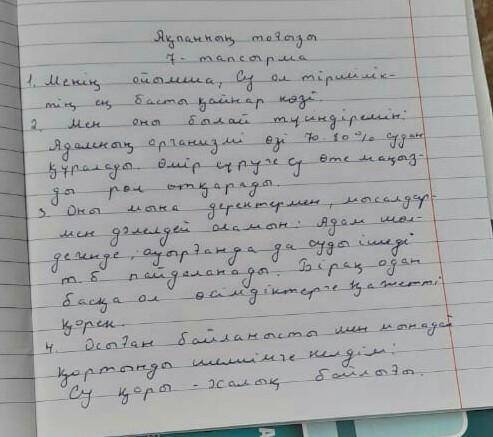 Ақпанның тоғызы
7 - тапсырма
1. Менің ойымша, Су ол тіршілік-
тің ең басты қайнар көзі.
2. Мен оны былай түсіндіремін:
Адамның организмі өзі 70-80% судан
құралады. Өмір сүруге су өте маңыз-
ды рөл атқарады.
3. Оны мына деректермен, мысалдар-
мен дәлелдей аламын: Адам шөл-
дегенде, ауырғанда да суды ішеді
т.б пайдаланады. Бірақ одан
басқа ол өсімдіктерге қажетті
қорек.
4. Осыған байланысты мен мынадай
қортынды шешімге келдім:
Су қоры - халық байлығы.